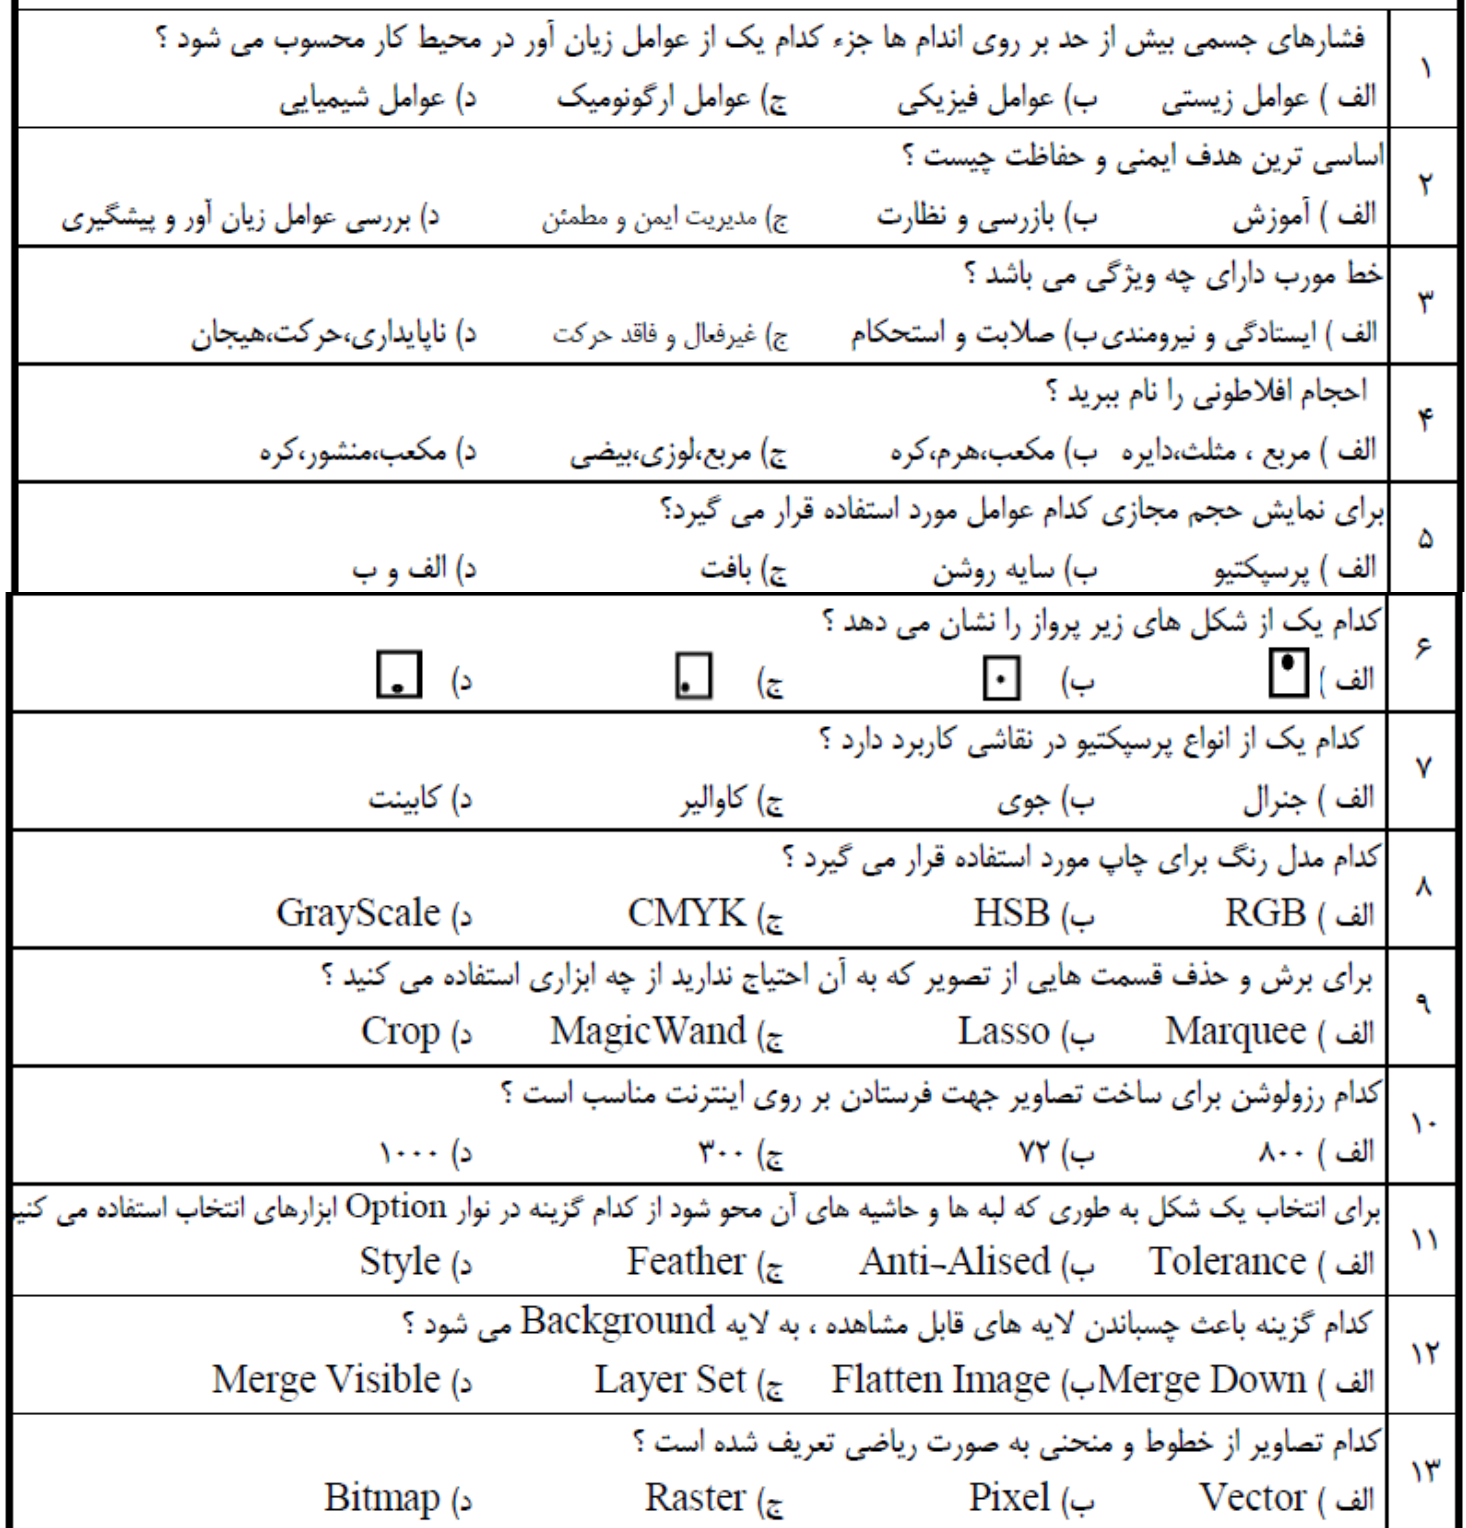 ۱ فشارهای جسمی بیش از حد بر روی اندام ها جزء کدام یک از عوامل زیان آور در محیط کار محسوب می شود ؟
الف ) عوامل زیستی ب) عوامل فیزیکی ج) عوامل ارگونومیک د) عوامل شیمیایی
۲ اساسی ترین هدف ایمنی و حفاظت چیست ؟
الف ) آموزش ب) بازرسی و نظارت ج) مدیریت ایمن و مطمئن د) بررسی عوامل زیان آور و پیشگیری
۳ خط مورب دارای چه ویژگی می باشد ؟
الف ) ایستادگی و نیرومندی ب) صلابت و استحکام ج) غیرفعال و فاقد حرکت د) ناپایداری،حرکت،هیجان
۴ احجام افلاطونی را نام ببرید ؟
الف ) مربع ، مثلث،دایره ب) مکعب،هرم،کره ج) مربع،لوزی،بیضی د) مکعب،منشور،کره
۵ برای نمایش حجم مجازی کدام عوامل مورد استفاده قرار می گیرد؟
الف ) پرسپکتیو ب) سایه روشن ج) بافت د) الف و ب
۶ کدام یک از شکل های زیر پرواز را نشان می دهد ؟
الف ) ب) ج) د)
۷ کدام یک از انواع پرسپکتیو در نقاشی کاربرد دارد ؟
الف ) جنرال ب) جوی ج) کاوالیر د) کابینت
۸ کدام مدل رنگ برای چاپ مورد استفاده قرار می گیرد ؟
الف ) RGB ب) HSB ج) CMYK د) GrayScale
۹ برای برش و حذف قسمت هایی از تصویر که به آن احتیاج ندارید از چه ابزاری استفاده می کنید ؟
الف ) Marquee ب) Lasso ج) MagicWand د) Crop
۱۰ کدام رزولوشن برای ساخت تصاویر جهت فرستادن بر روی اینترنت مناسب است ؟
الف ) ۸۰۰ ب) ۷۲ ج) ۳۰۰ د) ۱۰۰۰
۱۱ برای انتخاب یک شکل به طوری که لبه ها و حاشیه های آن محو شود از کدام گزینه در نوار Option ابزارهای انتخاب استفاده می کنی
الف ) Tolerance ب) Anti-Alised ج) Feather د) Style
۱۲ کدام گزینه باعث چسباندن لایه های قابل مشاهده ، به لایه Background می شود ؟
الف ) Merge Down ب) Flatten Image ج) Layer Set د) Merge Visible
۱۳ کدام تصاویر از خطوط و منحنی به صورت ریاضی تعریف شده است ؟
الف ) Vector ب) Pixel ج) Raster د) Bitmap